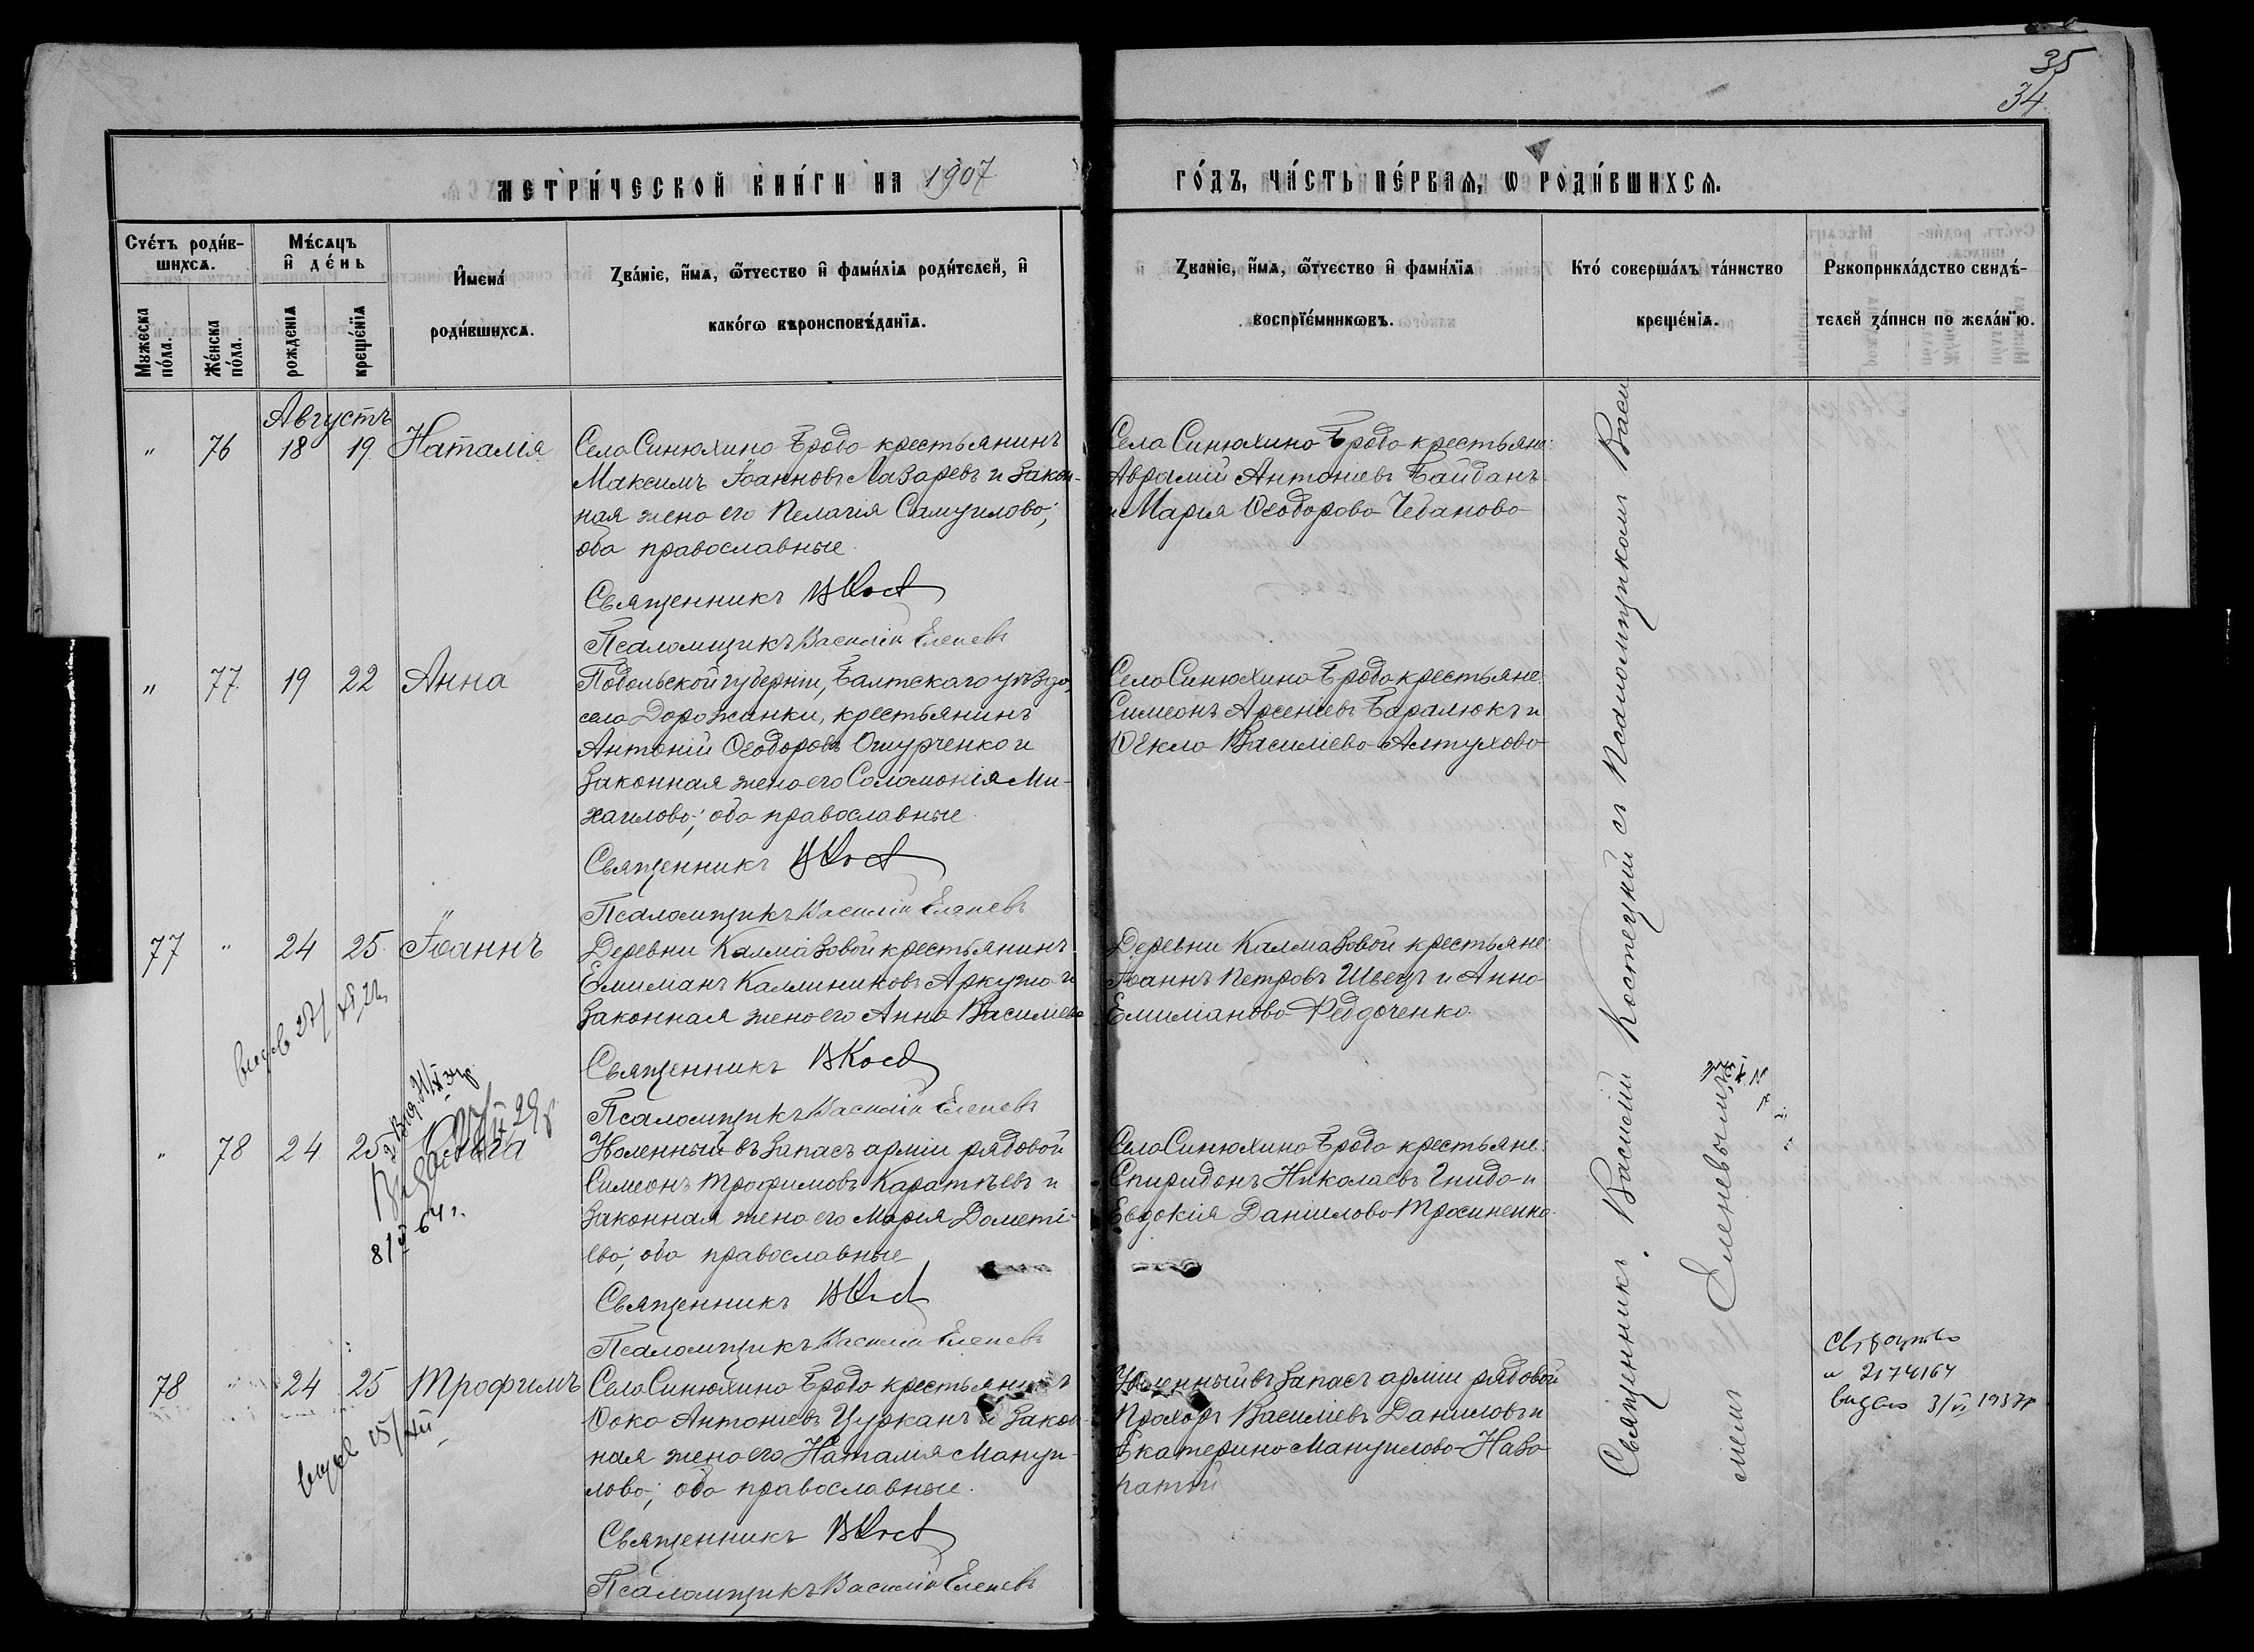 35
34
МЕТРИ́ЧЕСКОЙ КНИ́ГИ НА 1907
ГО́ДЪ, ЧА́СТЬ ПЕ́РВАѦ, Ѡ РОДИ́ВШИХСѦ.
Сче́тъ роди́в-
шихсѧ.
Мꙋжеска по́ла.
Же́нска по́ла.
Мѣ́сѧцъ
и҆ де́нь
рожденїѧ
креще́нїѧ
И҆мена́
роди́вшихсѧ.
Зва́нїе, и҆́мѧ, ѻ҆́тчество и҆ фами́лїѧ роди́телей, и҆
како́гѡ вѣроисповѣ́данїѧ.
Зва́нїе, и҆́мѧ, ѻ҆́тчество и҆ фами́лїѧ
воспрїе́мникѡвъ.
Кто́ соверша́лъ та́инство
креще́нїѧ.
Рꙋкоприкла́дство свидѣ́-
телей за́писи по жела́нїю.
Августъ
" 76 18 19 Наталія
Села Синюхина Брода крестьянинъ
Максимъ Іоанновъ Лазаревъ и закон-
ная жена его Пелагія Самуилова;
оба православные
Священникъ ВКост
Псаломщикъ Василій Еленевъ
Села Синюхина Брода крестьяне:
Аврамій Антоніевъ Байданъ
и Марія Ѳеодорова Чебанова
" 77 19 22 Анна
Подольской губерніи, Балтскаго уѣзда,
села Дорожинки, крестьянинъ
Антоній Ѳеодоровъ Ошурченко и
законная жена его Соломонія Ми-
хаилова; оба православные
Священникъ ВКост
Псаломщикъ Василій Еленевъ
Села Синюхина Брода крестьяне
Симеонъ Арсеніевъ Баралюкъ и
Ѳекла Василіева Алтухова
77 " 24 25 Іоаннъ
Деревни Калмазовой крестьянинъ
Емиліанъ Каллиниковъ Аркуша и
законная жена его Анна Василіева
Священникъ ВКост
Псаломщикъ Василій Еленевъ
Деревни Калмазовой крестьяне:
Іоаннъ Петровъ Швецъ и Анна
Емиліанова Федоченко
" 78 24 25
29 г
8/V 64 г.
Уволенный въ запасъ арміи рядовой
Симеонъ Трофимовъ Каратѣевъ и
законная жена его Марія Дометі-
ева; оба православные
Священникъ ВКост
Псаломщикъ Василій Еленевъ
Села Синюхина Брода крестьяне:
Спиридонъ Николаевъ Гнида и
Евдокія Даніилова Тросиненко
78 " 24 25 Трофимъ
Села Синюхина Брода крестьянинъ
Ѳока Антоніевъ Цурканъ и закон-
ная жена его Наталія Мануи-
лова; оба православные.
Священникъ ВКост
Псаломщикъ Василій Еленевъ
Уволенный въ запасъ арміи рядовой
Прохоръ Василіевъ Даниловъ и
Екатерина Мануилова
Священникъ Василій Костецкій съ псаломщикомъ Васи
ліемъ Еленевымъ
2174164
видано 3/VI 1937 р